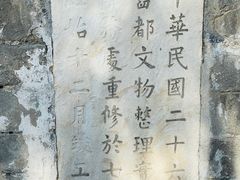 中華民國二十六
都文物整理
處重修於七
年十二月竣工